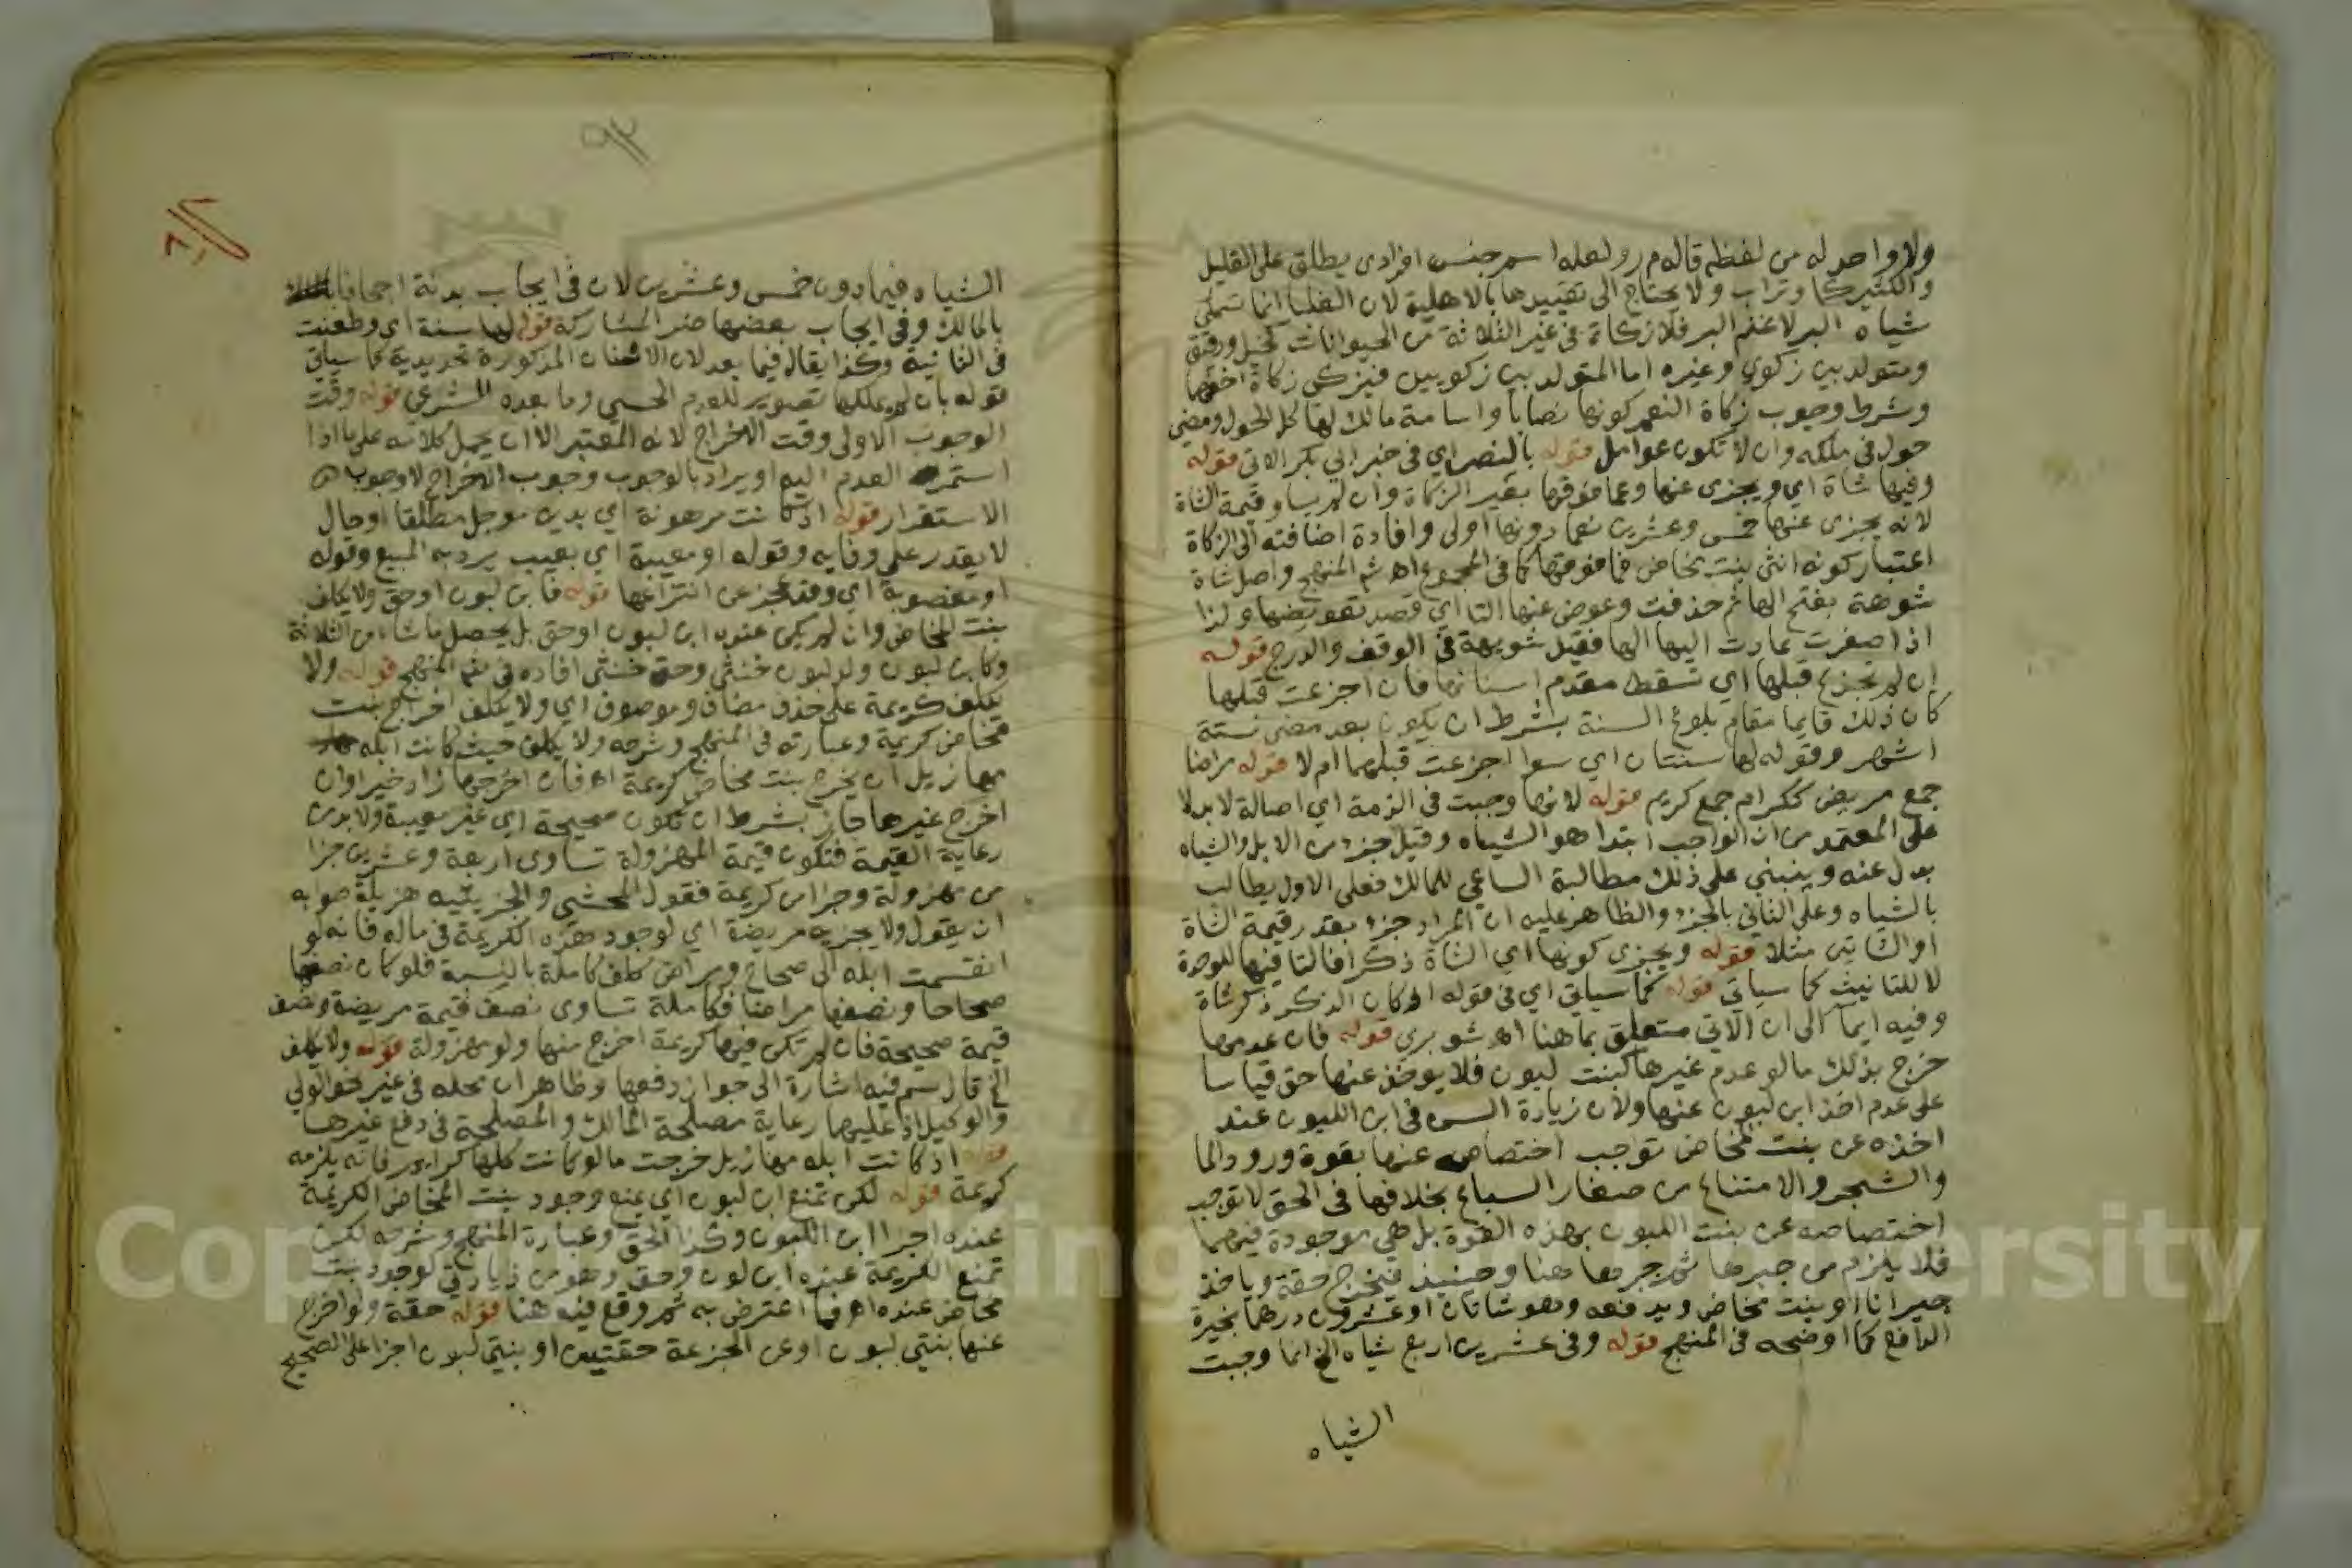 ولا واحد له من لفظه قاله م ر ولعله اسم جنس افرادى يطلق على القليل
والكثير كماء وتراب ولا يحتاج الى تقييدها بالاهلية لان الظبا انما تسمى
شياه البر لا غنم البر فلا زكاة فى غير الثلاثة من الحيوانات كخيل ورقيق
ومتولد بين زكوي وغيره اما المتولد بين زكويين فيزكى زكاة اخفهما
وشرط وجوب زكاة النعم كونها نصابا واسامة مالك لها كل الحول ومضى
حول فى ملكه وان لا تكون عوامل قوله بالنصر اي فى خبر ابي بكر الاتى قوله
وفيها شاة اي ويجزى عنها وعما فوقها بعير الزكاة وان لم يساو قيمة الشاة
لانه يجزى عنها خمس وعشرين فما دونها اولى وافادة اضافته الى الزكاة
اعتبار كونه انثى بنت مخاض فما فوقها كما فى المجموع اه شم المنهج واصل شاة
شوهة بفتح الها ثم حذفت وعوض عنها التا اي قصد تعويضها ولذا
اذا صغرت عادت اليها الها فقيل شويهة فى الوقف والدرج قوله
ان لم تجزع قبلها اي تسقط مقدم اسنانها فان اجزعت قبلها
كان ذلك قايما مقام بلوغ السنة بشرط ان يكون بعد مضى ستة
اشهر وقوله لها سنتان اي سوا اجزعت قبلهما ام لا قوله مراضا
جمع مريض ككرام جمع كريم قوله لانها وجبت فى الذمة اي اصالة لا بدلا
على المعتمد من ان الواجب ابتدا هو الشياه وقيل جزء من الابل والشياه
بدل عنه وينبني على ذلك مطالبة الساعي للمالك فعلى الاول يطالب
بالشياه وعلى الثاني بالجزء والظاهر عليه ان المراد جزء بقدر قيمة الشاة
او الشاتين مثلا قوله ويجزى كونها اي الشاة ذكرا فالتا فيها للوحدة
لا للتانيث كما سياتي قوله كما سياتي اي فى قوله اذ كان الذكر ذكر شاة
وفيه ايما الى ان الاتي متعلق بما هنا اه شوبري قوله فان عدمها
خرج بذلك ما لو عدم غيرها كبنت لبون فلا يوخذ عنها حق قياسا
على عدم اخذ ابن لبون عنها ولان زيادة السن فى ابن اللبون عند
اخذه عن بنت المخاض توجب اختصاصه عنها بقوة ورود الما
والشجر والامتناع من صغار السباع بخلافها فى الحق لا توجب
اختصاصه عن بنت اللبون بهذه القوة بل هي موجودة فيهما
فلا يلزم من جبرها ثم جبرها هنا وحينيذ فيخرج حقة وياخذ
جبرانا او بنت مخاض ويدفعه وهو شاتان او عشرون درهما بخيرة
الدافع كما اوضحه فى المنهج قوله وفى عشرين اربع شياه الخ انما وجبت
الشياه
الشياه فيما دون خمس وعشرين لان فى ايجاب بدنة اجحافا
بالمالك وفى ايجاب بعضها ضرر المشاركة قوله لها سنة اي وطعنت
فى الثانية وكذا يقال فيما بعد لان الاسنان المذكورة تحديدية كما سياتي
قوله بان لم يملكها تصوير للعدم الحسي وما بعده الشرعي قوله وقت
الوجوب الاولى وقت الاخراج لانه المعتبر الا ان يحمل كلامه على ما اذا
استمر العدم اليه او يراد بالوجوب وجوب الاخراج لا وجوب
الاستقرار قوله اذ كانت مرهونة اي بدين موجل مطلقا او حال
لا يقدر على وفايه وقوله او معيبة اي بعيب يرد به المبيع وقوله
او مغصوبة اي وقد عجز عن انتزاعها قوله فابن لبون او حق ولا يكلف
بنت المخاض وان لم يكن عنده ابن لبون او حق بل يحصل ما شاء من الثلاثة
وكابن لبون ولد لبون خنثى وحق خنثى افاده فى شم المنهج قوله ولا
يكلف كريمة على حذف مضاف وموصوف اي ولا يكلف اخراج بنت
مخاض كريمة وعبارته فى المنهج وشرحه ولا يكلف حيث كانت ابله
مهازيل ان يخرج بنت مخاض كريمة اه فان اخرجها زاد خيرا وان
اخرج غيرها جاز بشرط ان تكون صحيحة اي غير معيبة ولا بد من
رعاية القيمة فتكون قيمة المهزولة تساوى اربعة وعشرين جزا
من مهزولة وجزا من كريمة فقول المحشي والجزيييه هزيلة صوابه
ان يقول ولا يجزيه مريضة اي لوجود هذه الكريمة فى ماله فانه لو
انقسمت ابله الى صحاح ومراض كلف كاملة بالنسبة فلو كان نصفها
صحاحا ونصفها مراضا فكاملة تساوى نصف قيمة مريضة ونصف
قيمة صحيحة فان لم تكن فيها كريمة اخرج منها ولو مهزولة قوله ولا يكلف
الخ قال سم فيه اشارة الى جواز دفعها وظاهر ان محله فى غير نحو الولي
والوكيل اذ عليهما رعاية مصلحة المالك والمصلحة فى دفع غيرها
قوله اذ كانت ابله مهازيل خرجت ما لو كانت كلها كرايم فانه يلزمه
كريمة قوله لكن تمنع ابن لبون اي يمنع وجود بنت المخاض الكريمة
عنده اجزا ابن اللبون وكذا الحق وعبارة المنهج وشرحه لكن
تمنع الكريمة عنده ابن لبون وحق وهو من زيادتي لوجود بنت
مخاض عنده اه فما اعترض به ثم وقع فيه هنا قوله حقة ولو اخرج
عنها بنتي لبون او عن الجزعة حقتين او بنتي لبون اجزا على الصحيح